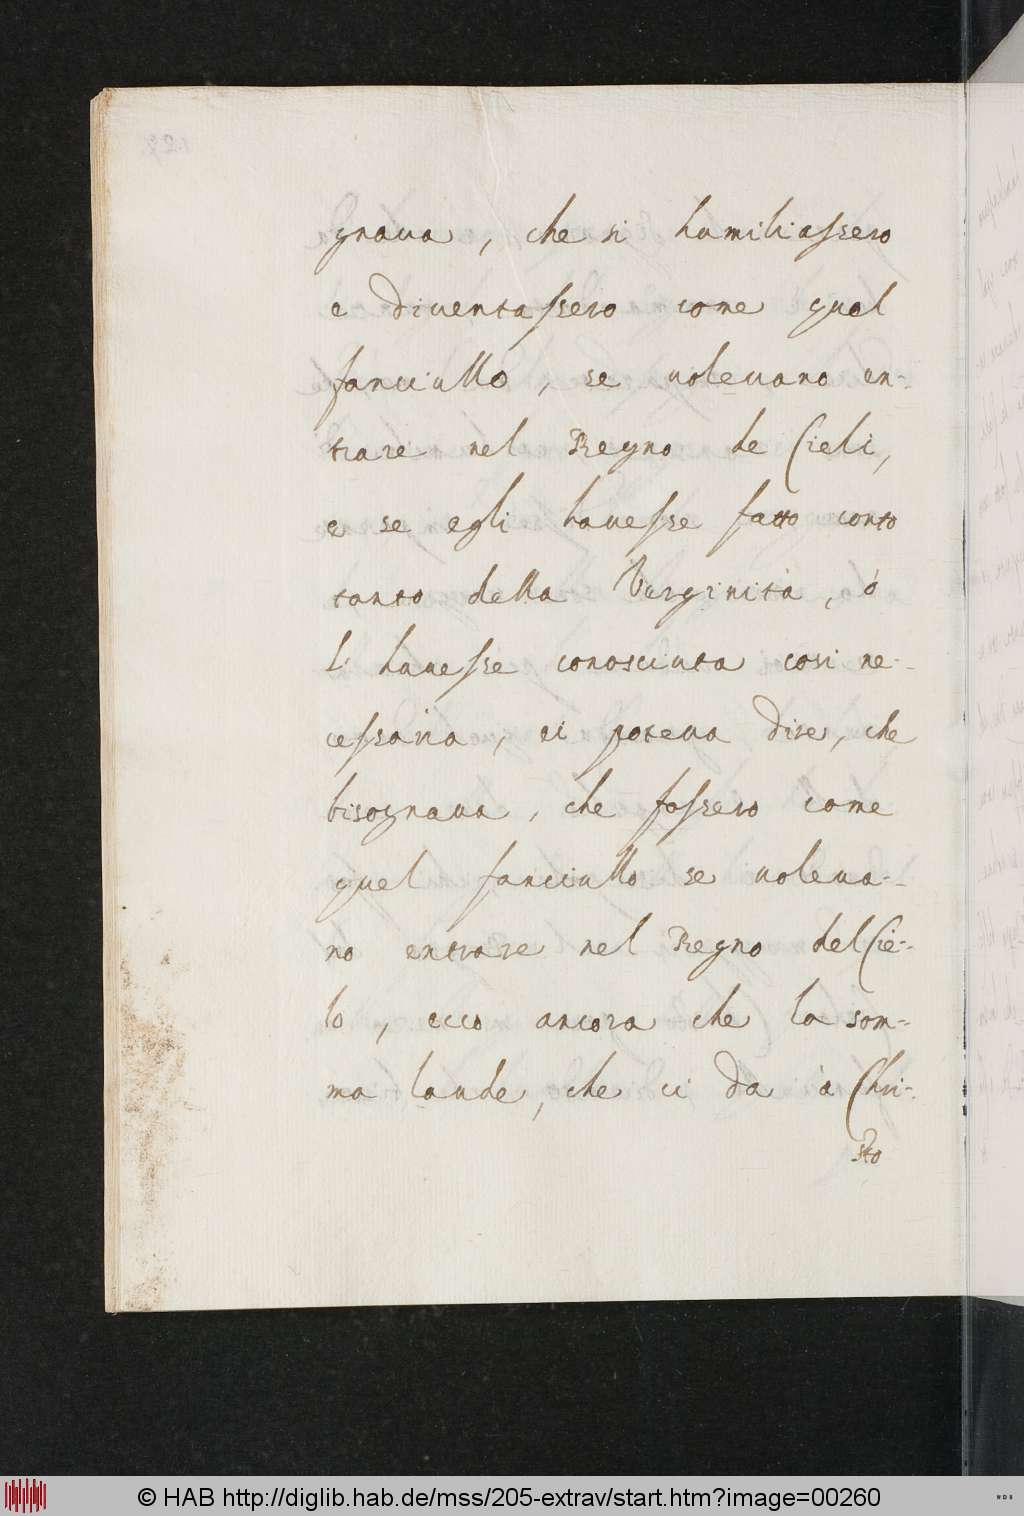 gnaua, che si humiliassero
e diuentassero come quel
fanciullo, se uoleuano en-
trare nel Regno de Cieli,
e se egli hauesse fatto conto
tanto della Verginità, ò
l' hauesse conosciuta cosi ne-
cessaria, ei poteua dire, che
bisognaua, che fossero come
quel fanciullo se uoleua-
no entrare nel Regno del Cie-
lo, ecco ancora che la som-
ma laude, che ci da à Chri-
sto
© HAB http://diglib.hab.de/mss/205-extrav/start.htm?image=00260